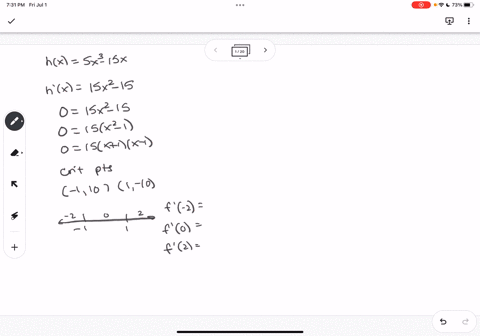 7:31 PM Fri Jul 1
73%
1/20
h(x) = 5x³-15x
h'(x) = 15x²-15
0 = 15x²-15
0 = 15(x²-1)
0 = 15(x+1)(x-1)
crit pts
(-1, 10) (1, -10)
-2 0 2
-1 1
f'(-2) =
f'(0) =
f'(2) =